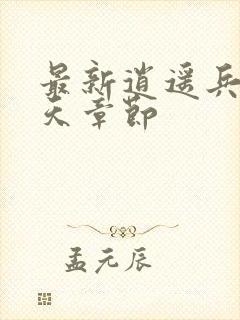 最新逍遥兵
天章節
孟元辰